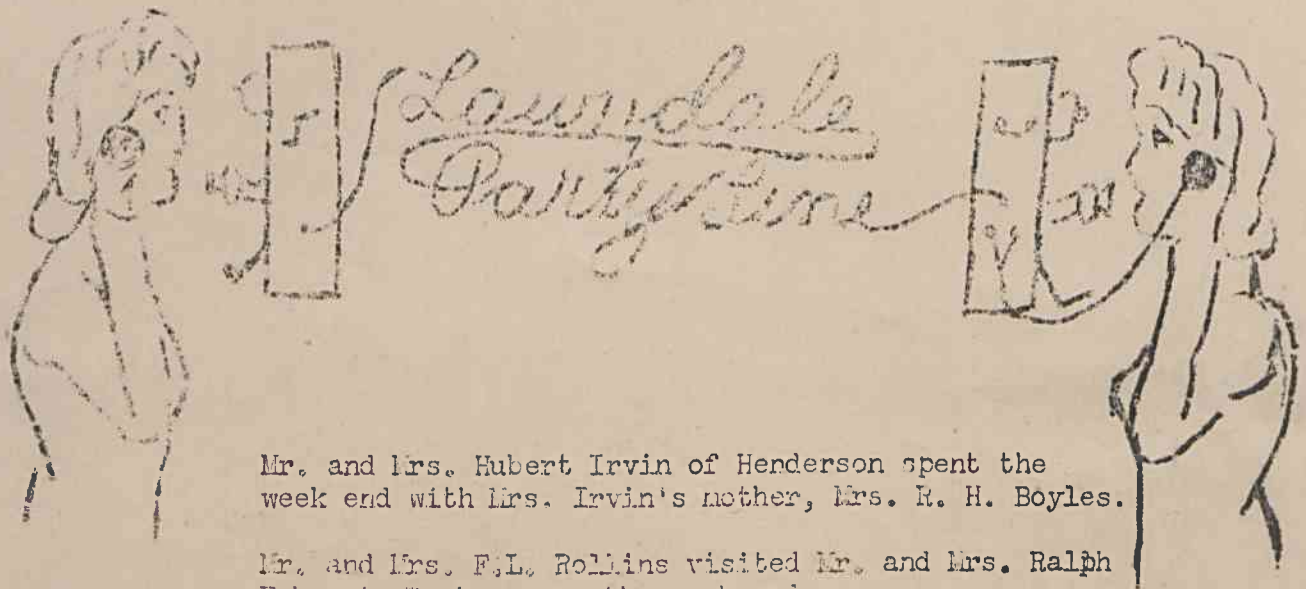 Lawndale
Party Line
Mr. and Mrs. Hubert Irvin of Henderson spent the
week end with Mrs. Irvin's mother, Mrs. R. H. Boyles.
Mr. and Mrs. F.L. Rollins visited Mr. and Mrs. Ralph